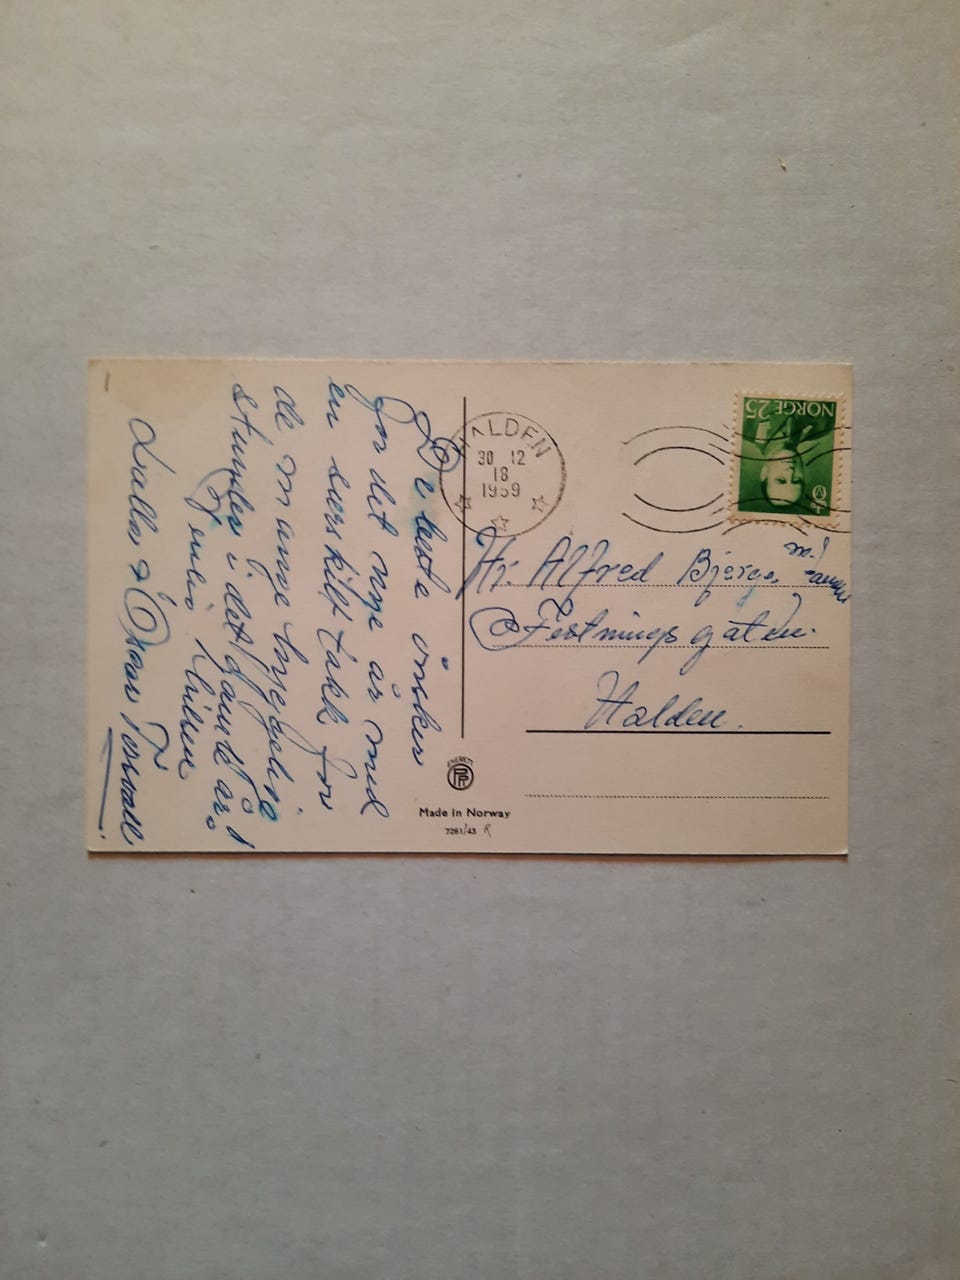 De beste ønsker
for det nye år med
en særskilt takk for
de mange hyggelige
stunder i det gamle år.
Hilsen
Lalla & Oscar
HALDEN
30 12
18
1959
NORGE 25
Hr. Alfred Bjerge, m/
Festningsgaten.
Halden.
EMERETI
PR
Made in Norway
7261/43 R